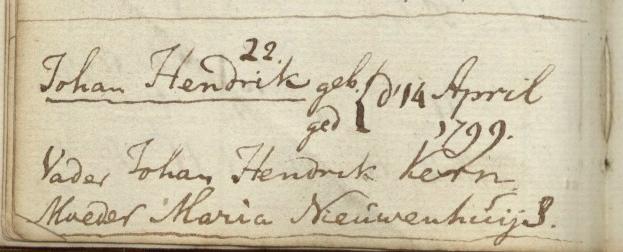 22.
Johan Hendrik geb. { d' 14 April
ged 1799.
Vader Johan Hendrik Kern
Moeder Maria Nieuwenhuijs.